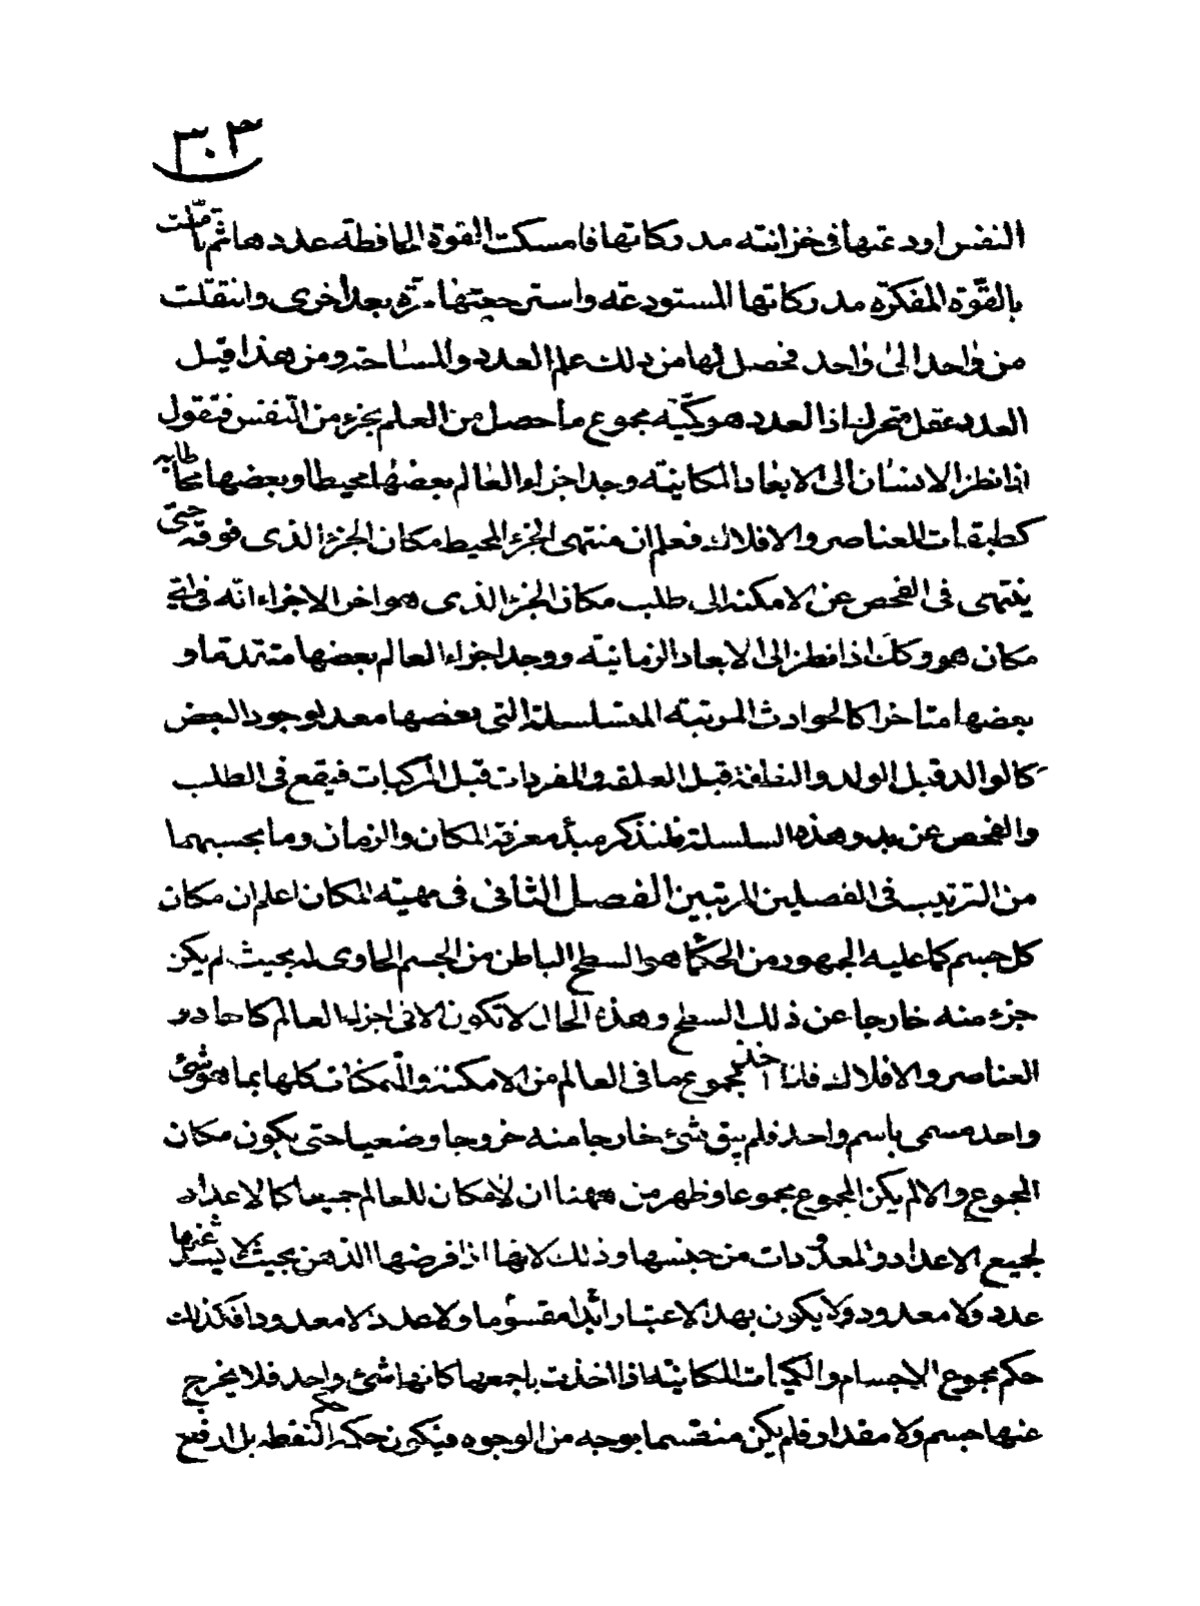 ٣٠٣
النفس اودعتها فى خزانته مدركاتها فامسكت القوة الحافظة عددها ثم تأملت
بالقوّة المفكرة مدركاتها المستودعة واسترجعتها مرّة بعد اخرى وانتقلت
من واحد الى واحد فحصل لها من ذلك علم العدد والمساحة ومن هذا قيل
العدد عقل متحرك اذ العدد هو كمّية مجموع ما حصل من العلم بجزء من النفس فنقول
اذا نظر الانسان الى الابعاد المكانية وجد اجزاء العالم بعضها محيطا وبعضها محاطا به
كطبقات العناصر والافلاك فعلم ان منتهى الجزء المحيط مكان الجزء الذى فوقه حتى
ينتهى فى الفحص عن الامكنة الى طلب مكان الجزء الذى هو اخر الاجزاء انه فى اىّ
مكان هو وكك اذا نظر الى الابعاد الزمانية ووجد اجزاء العالم بعضها متقدما و
بعضها متاخرا كالحوادث المرتبة المتسلسلة التى بعضها معد لوجود البعض
كالوالد قبل الولد والنطفة قبل العلقة والمفردات قبل المركبات فيقع فى الطلب
والفحص عن بدو هذه السلسلة فلنذكر مبدأ معرفة المكان والزمان وما بحسبهما
من الترتيب فى الفصلين المرتبين الفصل الثانى فى مهية المكان اعلم ان مكان
كل جسم كما عليه الجمهور من الحكماء هو السطح الباطن من الجسم الحاوى له بحيث لم يكن
جزء منه خارجا عن ذلك السطح وهذه الحال لا تكون الا فى اجزاء العالم كاحاد
العناصر والافلاك فاذا اخذ مجموع ما فى العالم من الامكنة والمتمكنات كلها بما هو شئ
واحد مسمى باسم واحد فلم يبق شئ خارجا منه خروجا وضعيا حتى يكون مكان
المجموع والا لم يكن المجموع مجموعا وظهر من ههنا ان لا مكان للعالم جميعا كما لا عداد
لجميع الاعداد والمعدودات من جنسها وذلك لانها اذا فرضها الذهن بحيث لا يشذ عنها
عدد ولا معدود ولا يكون بهذا الاعتبار امرا مقسوما ولا عددا لا معدودا فكذلك
حكم مجموع الاجسام والكميات المكانية اذا اخذت باجمعها كانها شئ واحد فلا يخرج
عنها جسم ولا مقدار فلم يكن منقسما بوجه من الوجوه فيكون حكمه حكم النقطة بل ارفع